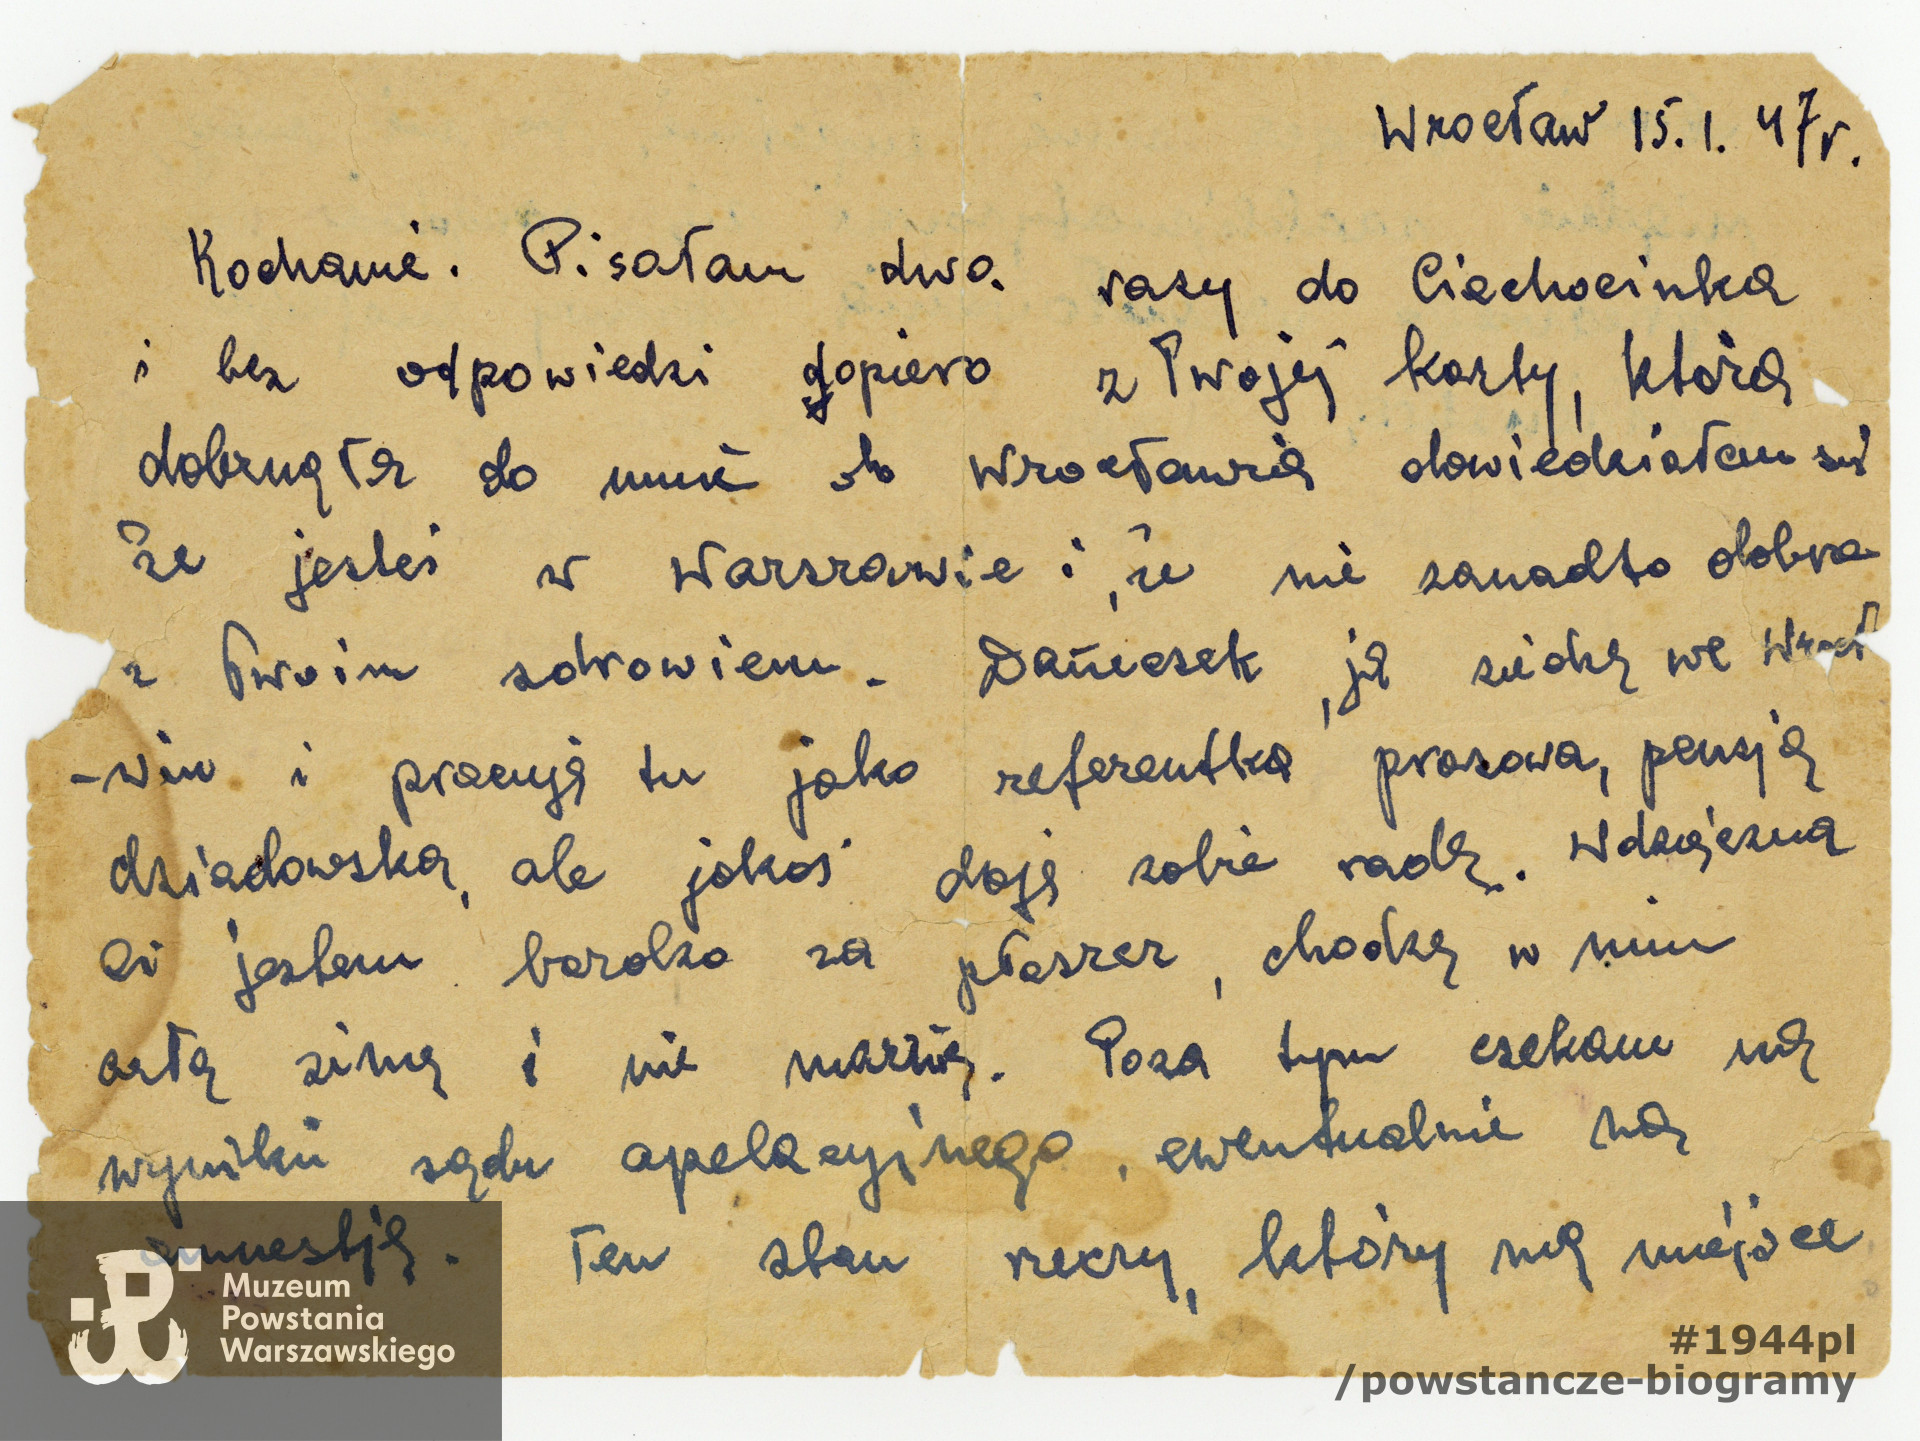 Wrocław 15.1.47r.
Kochanie. Pisałam dwa razy do Ciechocinka
i bez odpowiedzi dopiero z Twojej karty, która
dobrnęła do mnie do Wrocławia dowiedziałam się
że jesteś w Warszawie i, że nie zanadto dobrze
z Twoim zdrowiem. Danieczek, ja siedzę we Wrocł
-wiu i pracuję tu jako referentka prasowa, pensja
dziadowska, ale jakoś daję sobie radę. Wdzięczna
Ci jestem bardzo za płaszcz, chodzę w nim
całą zimę i nie marznę. Poza tym czekam na
wyniki sądu apelacyjnego, ewentualnie na
amnestję. Ten stan rzeczy, który na miejsce
Muzeum
Powstania
Warszawskiego
#1944pl
/powstancze-biogramy